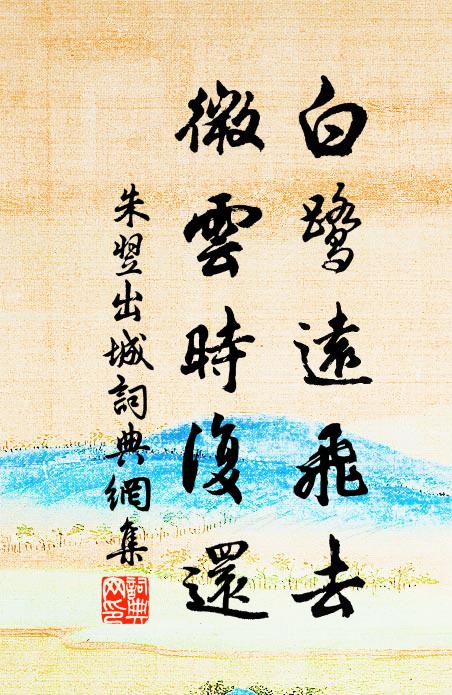 白鷺遠飛去
微雲時復還
朱翌出城詞典網集